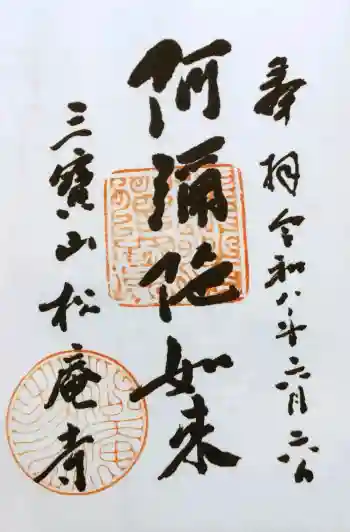 奉拝 令和八年六月六日
阿彌陀如来
三寶山松庵寺